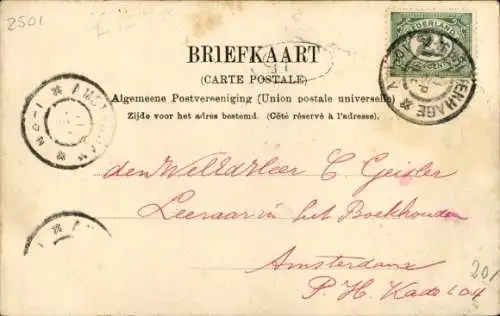 2501
BRIEFKAART
(CARTE POSTALE)
Algemeene Postvereeniging (Union postale universelle)
Zijde voor het adres bestemd. (Côté réservé à l'adresse).
NEDERLAND
2½
AMSTERDAM
den WelEdHeer C. Geisler
Leeraar in het Boekhouden
Amsterdam
P. H. Kade 104
201